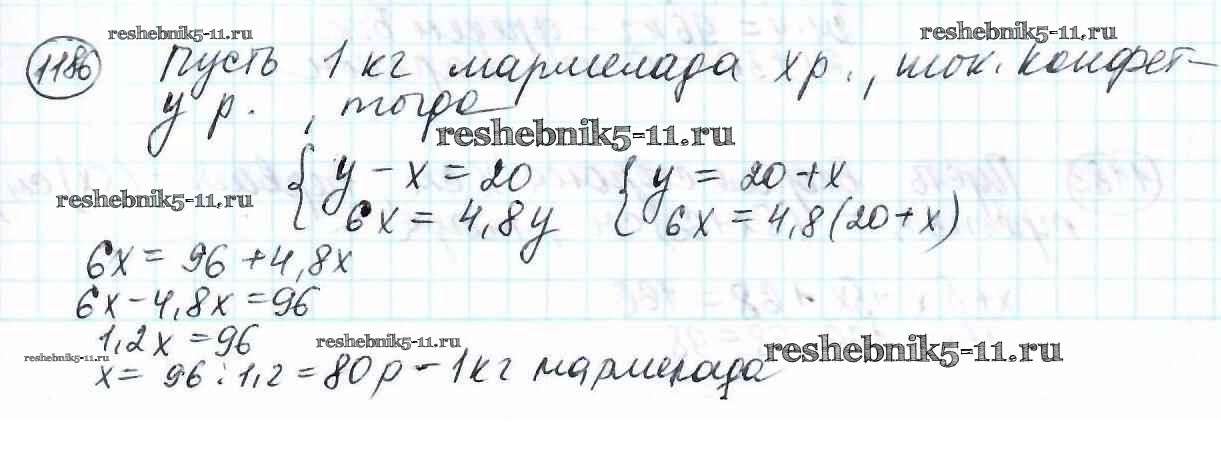 reshebnik5-11.ru
reshebnik5-11.ru
1186 Пусть 1 кг мармелада x р., шок. конфет-
y р. , тогда
reshebnik5-11.ru
{ y - x = 20 { y = 20 + x
reshebnik5-11.ru
6x = 4,8y 6x = 4,8(20+x)
6x = 96 + 4,8x
6x - 4,8x = 96
1,2x = 96
reshebnik5-11.ru
reshebnik5-11.ru
reshebnik5-11.ru
x = 96 : 1,2 = 80р - 1кг мармелада